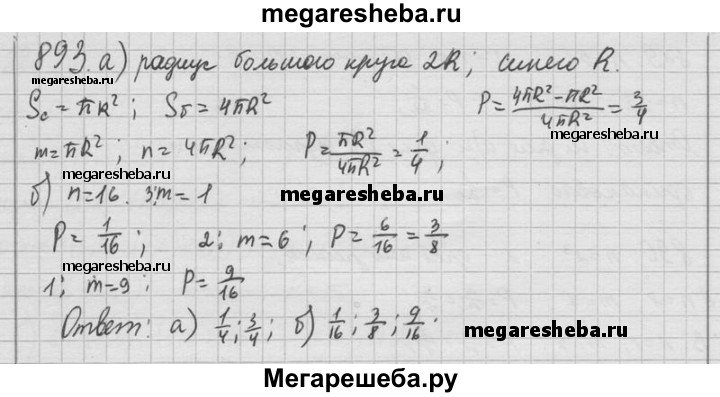 megaresheba.ru
893. а) радиус большого круга 2R; синего R.
megaresheba.ru
Sс = πR²; Sб = 4πR²
P = (4πR² - πR²)/(4πR²) = 3/4
megaresheba.ru
m = πR²; n = 4πR²; P = πR²/4πR² = 1/4;
megaresheba.ru
б) n=16. 3; m = 1
megaresheba.ru
P = 1/16; 2: m = 6; P = 6/16 = 3/8
megaresheba.ru
1; m = 9; P = 9/16
Ответ: а) 1/4; 3/4; б) 1/16; 3/8; 9/16.
megaresheba.ru
Мегарешеба.ру